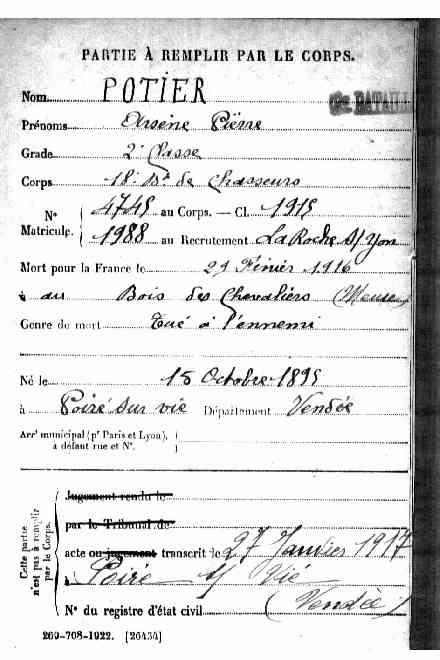 PARTIE À REMPLIR PAR LE CORPS.
Nom POTIER
Prénoms Arsène Pierre
Grade 2e Classe
Corps 18e Bn de Chasseurs
N° 4745 au Corps. — Cl. 1915
Matricule. 1988 au Recrutement La Roche s/ Yon
Mort pour la France le 29 Février 1916
à au Bois des Chevaliers (Meuse)
Genre de mort Tué à l'ennemi
Né le 15 Octobre 1895
à Poiré sur vie Département Vendée
Arrt municipal (pr Paris et Lyon),
à défaut rue et N°.
Cette partie
n'est pas à remplir
par le Corps.
Jugement rendu le
par le Tribunal de
acte ou jugement transcrit le 27 Janvier 1917
à Poiré s/ Vie
(Vendée)
N° du registre d'état civil
269-708-1922. [26434]